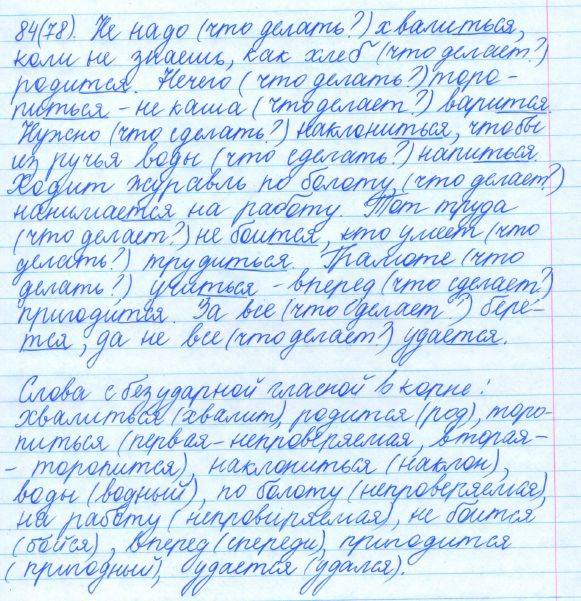 84(78). Не надо (что делать?) хвалиться,
коли не знаешь, как хлеб (что делает?)
родится. Нечего (что делать?) торо-
питься - не каша (что делает?) варится.
Нужно (что сделать?) наклониться, чтобы
из ручья воды (что сделать?) напиться.
Ходит журавль по болоту, (что делает?)
нанимается на работу. Тот труда
(что делает?) не боится, кто умеет (что
делать?) трудиться. Грамоте (что
делать?) учиться - вперед (что сделает?)
пригодится. За все (что сделает?) бере-
тся, да не все (что делает?) удается.
Слова с безударной гласной в корне:
хвалиться (хвалит), родится (род), торо-
питься (первая - непроверяемая, вторая -
- торопится), наклониться (наклон),
воды (водный), по болоту (непроверяемая),
на работу (непровиряемая), не боится
(бойся), вперед (спереди), пригодится
(пригодный, удается (удался).